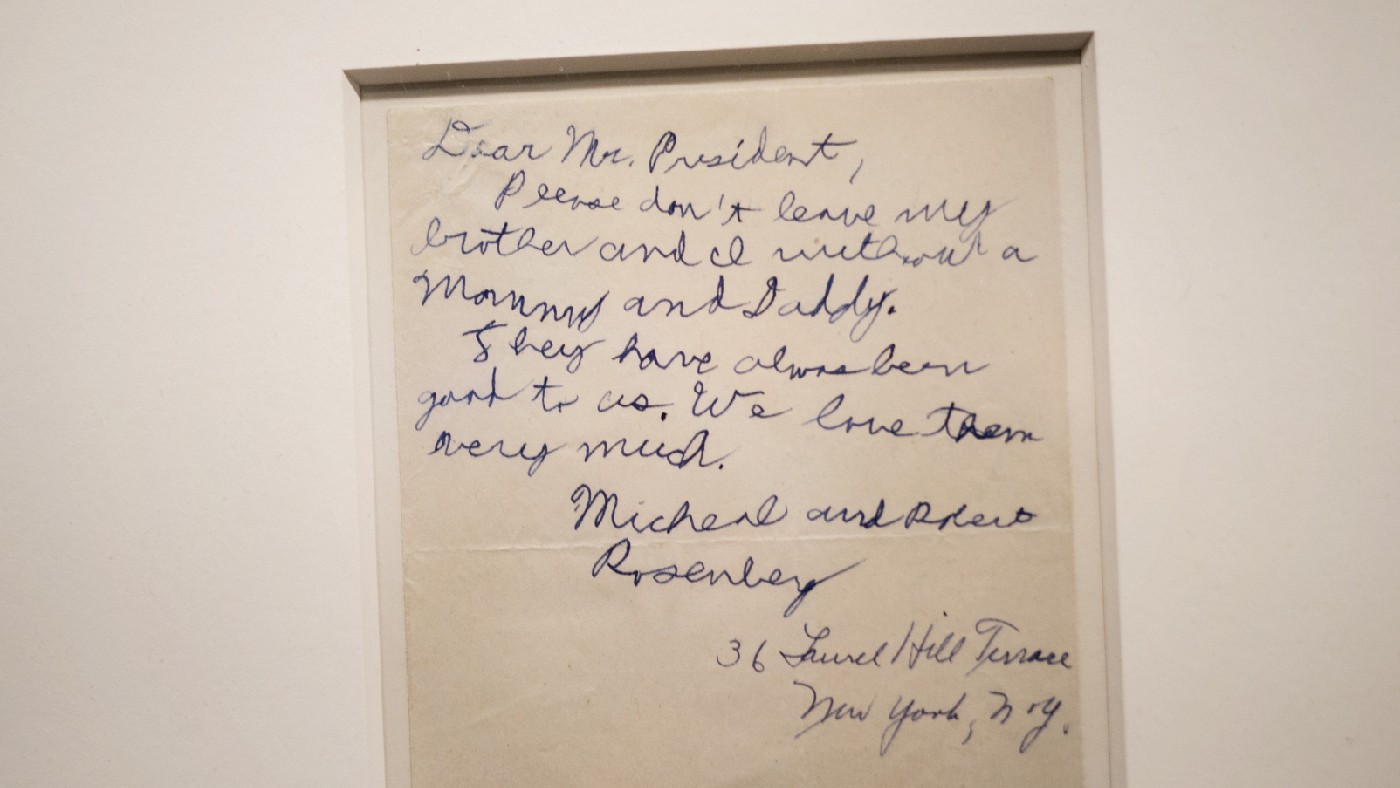 Dear Mr. President,
Please don't leave my
brother and I without a
Mommy and Daddy.
They have alwas been
good to us. We love them
very much.
Micheal and Robert
Rosenberg
36 Laurel Hill Terrace
New York, N.Y.